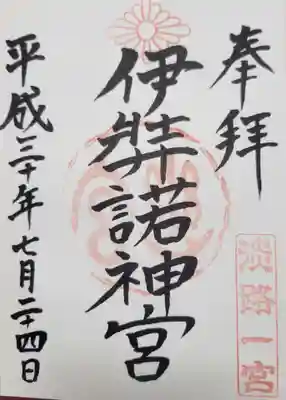 奉拝
伊弉諾神宮
淡路一宮
平成三十年七月二十四日